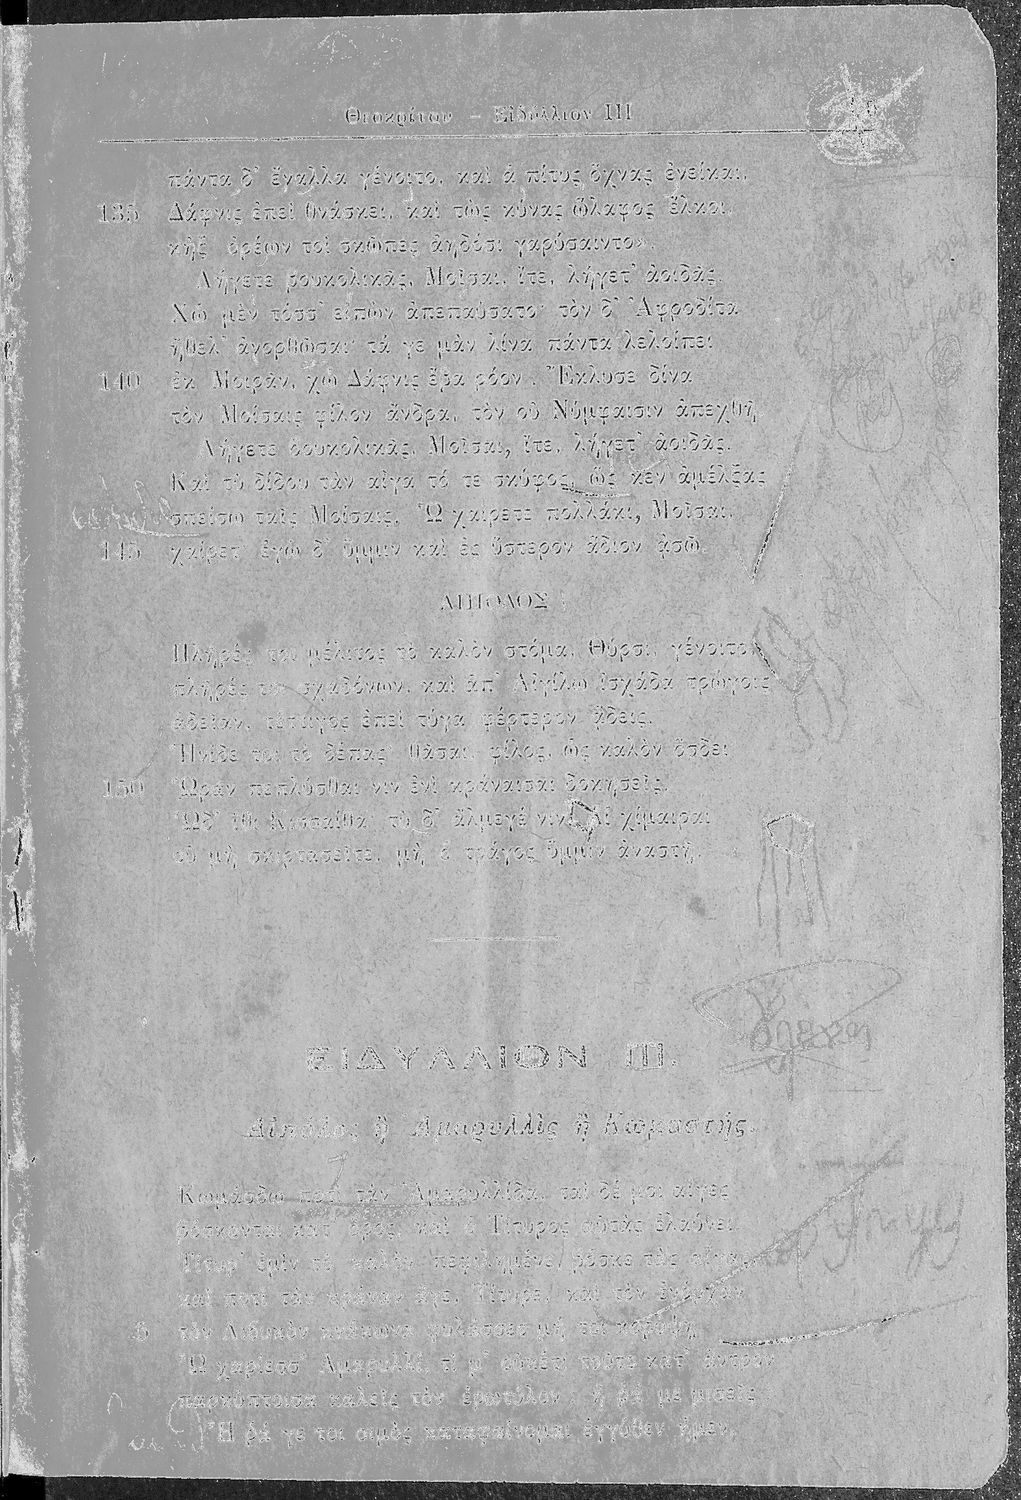 Θεοκρίτου — Εἰδύλλιον III
πάντα δ' ἔναλλα γένοιτο, καὶ ἁ πίτυς ὄχνας ἐνείκαι,
135 Δάφνις ἐπεὶ θνάσκει, καὶ τὼς κύνας ὥλαφος ἕλκοι,
κἠξ ὀρέων τοὶ σκῶπες ἀηδόσι γαρύσαιντο».
Λήγετε βουκολικᾶς, Μοῖσαι, ἴτε, λήγετ' ἀοιδᾶς.
Χὠ μὲν τόσσ' εἰπὼν ἀπεπαύσατο· τὸν δ' Ἀφροδίτα
ἤθελ' ἀνορθῶσαι· τά γε μὰν λίνα πάντα λελοίπει
140 ἐκ Μοιρᾶν, χὠ Δάφνις ἔβα ρόον. Ἔκλυσε δίνα
τὸν Μοίσαις φίλον ἄνδρα, τὸν οὐ Νύμφαισιν ἀπεχθῆ
Λήγετε βουκολικᾶς, Μοῖσαι, ἴτε, λήγετ' ἀοιδᾶς.
Καὶ τὺ δίδου τὰν αἶγα τό τε σκύφος, ὥς κεν ἀμέλξας
σπείσω ταῖς Μοίσαις. Ὢ χαίρετε πολλάκι, Μοῖσαι,
145 χαίρετ' ἐγὼ δ' ὔμμιν καὶ ἐς ὕστερον ἅδιον ᾀσῶ.
ΑΙΠΟΛΟΣ
Πλῆρές τοι μέλιτος τὸ καλὸν στόμα, Θύρσι, γένοιτο,
πλῆρές τοι σχαδόνων, καὶ ἀπ' Αἰγίλω ἰσχάδα τρώγοις
ἁδεῖαν, τέττιγος ἐπεὶ τύγα φέρτερον ᾄδεις.
Ἠνίδε τοι τὸ δέπας· θᾶσαι, φίλος, ὡς καλὸν ὄσδει
150 Ὡρᾶν πεπλύσθαι νιν ἐνὶ κράναισαι δοκησεῖς.
Ὧδ' ἴθι Κισσαίθα· τὺ δ' ἄλμεγέ νιν. Αἱ χίμαιραι
οὐ μὴ σκιρτασεῖτε, μὴ ὁ τράγος ὔμμιν ἀναστῇ.
ΕΙΔΥΛΛΙΟΝ III.
Αἰπόλος ἢ Ἀμαρυλλὶς ἢ Κωμαστής.
Κωμάσδω ποτὶ τὰν Ἀμαρυλλίδα, ταὶ δέ μοι αἶγες
βόσκονται κατ' ὄρος, καὶ ὁ Τίτυρος αὐτὰς ἐλαύνει.
Τίτυρ' ἐμὶν τὸ καλὸν πεφιλημένε, βόσκε τὰς αἶγας,
καὶ ποτὶ τὰν κράναν ἄγε, Τίτυρε, καὶ τὸν ἐνόρχαν
5 τὸν Λιβυκὸν κνάκωνα φυλάσσεο μή τυ κορύψῃ
Ὦ χαρίεσσ' Ἀμαρυλλί, τί μ' οὐκέτι τοῦτο κατ' ἄντρον
παρκύπτοισα καλεῖς τὸν ἐρωτύλον; ἦ ῥά με μισεῖς
Ἦ ῥά γέ τοι σιμὸς καταφαίνομαι ἐγγύθεν ἦμεν,